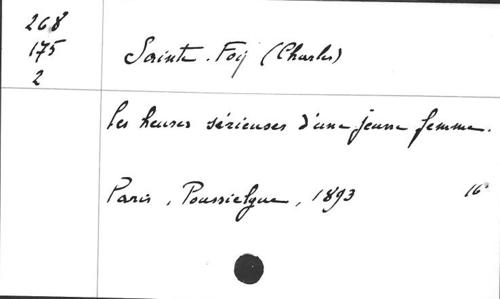 268
175
2
Sainte-Foy (Charles)
Les heures sérieuses d'une jeune femme.
Paris, Poussielgue, 1893 16°